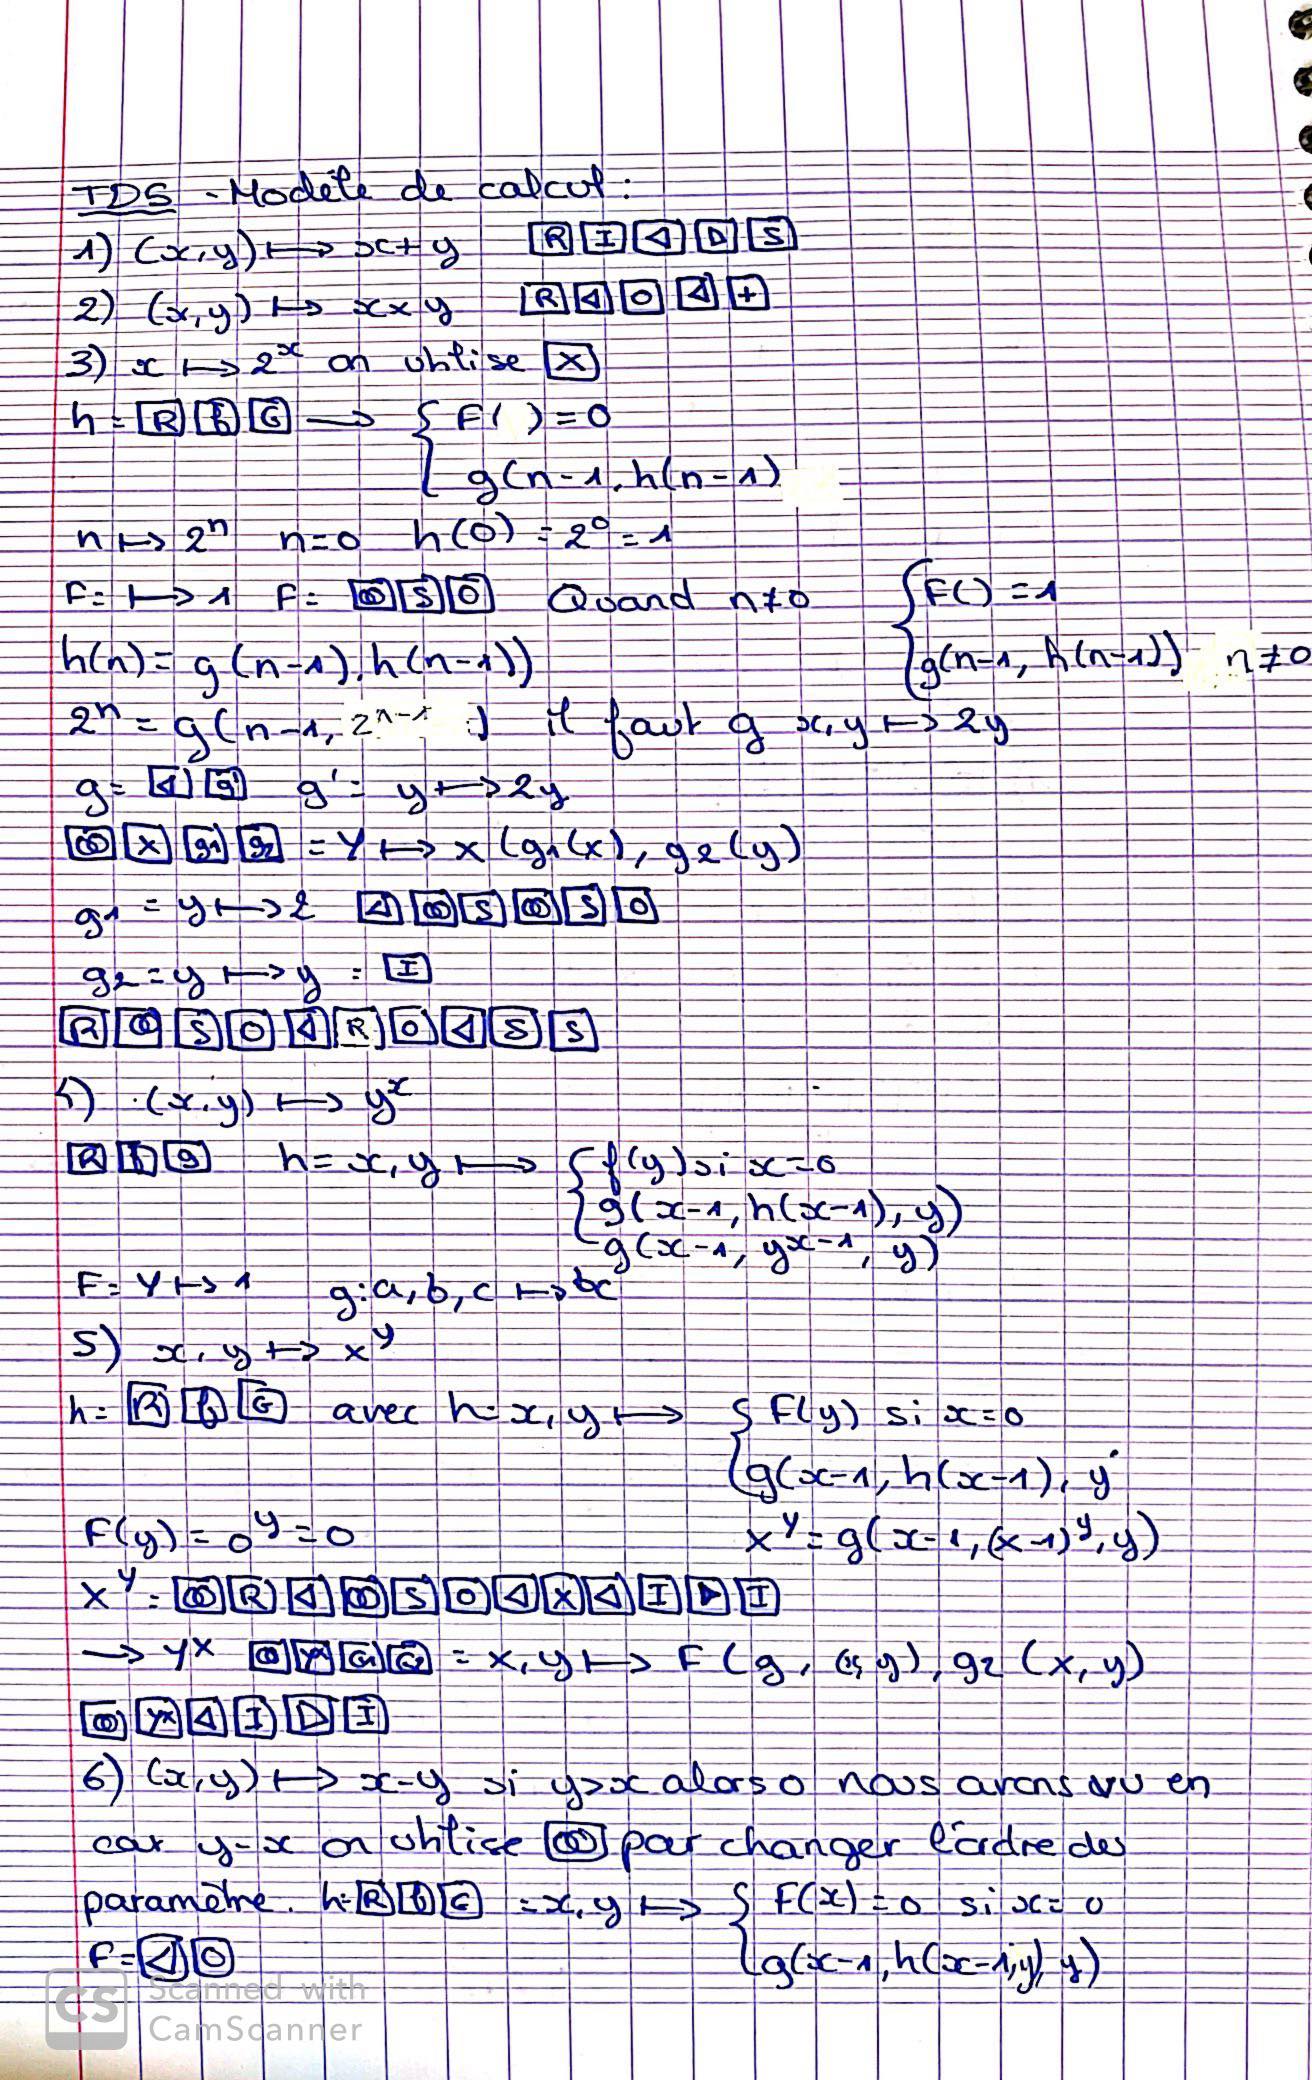 TD5 - Modèle de calcul :
1) (x,y) ↦ x+y [R] [I] [◁] [▷] [S]
2) (x,y) ↦ x×y [R] [◁] [O] [◁] [+]
3) x ↦ 2^x on utilise [X]
h = [R] [f] [G] → { F( ) = 0
g(n-1, h(n-1)
n ↦ 2^n n=0 h(0) = 2^0 = 1
F = ↦ 1 F = [⊚] [S] [O] Quand n≠0 { F() = 1
h(n) = g(n-1), h(n-1)) g(n-1, h(n-1)) n≠0
2^n = g(n-1, 2^n-1 ) il faut g x,y ↦ 2y
g = [◁] [g'] g' = y ↦ 2y
[⊚] [X] [g1] [g2] = Y ↦ x (g1(x), g2(y)
g1 = y ↦ 2 [◁] [⊚] [S] [⊚] [S] [O]
g2 = y ↦ y = [I]
[R] [⊚] [S] [O] [◁] [R] [O] [◁] [S] [S]
4) (x,y) ↦ y^x
[R] [f] [g] h = x, y ↦ { f(y) si x=0
g(x-1, h(x-1), y)
g(x-1, y^x-1, y)
F = Y ↦ 1 g: a, b, c ↦ bc
5) x, y ↦ x^y
h = [R] [f] [G] avec h = x, y ↦ { F(y) si x=0
g(x-1, h(x-1), y
F(y) = 0^y = 0 x^y = g(x-1, (x-1)^y, y)
x^y = [⊚] [R] [◁] [⊚] [S] [O] [◁] [X] [◁] [I] [▶] [I]
→ y^x [⊚] [y^x] [G1] [G2] = x, y ↦ F (g, (x, y), g2 (x, y)
[⊚] [y^x] [◁] [I] [▷] [I]
6) (x,y) ↦ x-y si y>x alors 0 nous avons vu en
car y-x on utilise [⊚] pour changer l'ordre des
paramètre. h = [R] [f] [G] = x, y ↦ { F(x) = 0 si x = 0
F = [◁] [O] g(x-1, h(x-1, y), y)
CS Scanned with
CamScanner